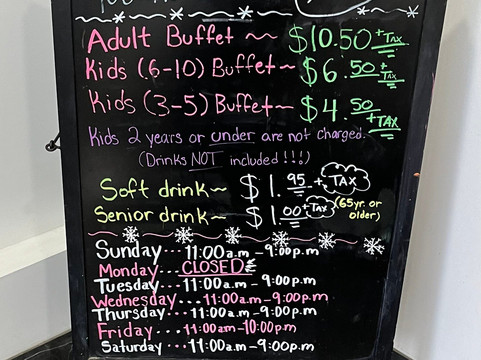 Adult Buffet ~~ $10.50 +Tax
Kids (6-10) Buffet~ $6.50 +Tax
Kids (3-5) Buffet~ $4.50 +TAX
Kids 2 years or under are not charged.
(Drinks NOT included!!!)
Soft drink~ $1.95 + TAX
Senior drink~ $1.00 +Tax (65yr. or older)
Sunday...11:00a.m - 9:00p.m
Monday...CLOSED
Tuesday...11:00a.m - 9:00p.m
Wednesday...11:00a.m-9:00p.m
Thursday...11:00a.m - 9:00p.m
Friday...11:00am-10:00p.m
Saturday...11:00a.m-9:00p.m